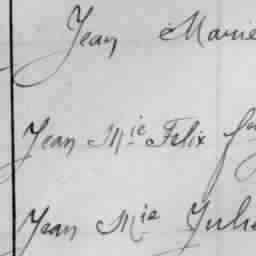 Jean Marie
Jean Mie Felix
Jean Mie